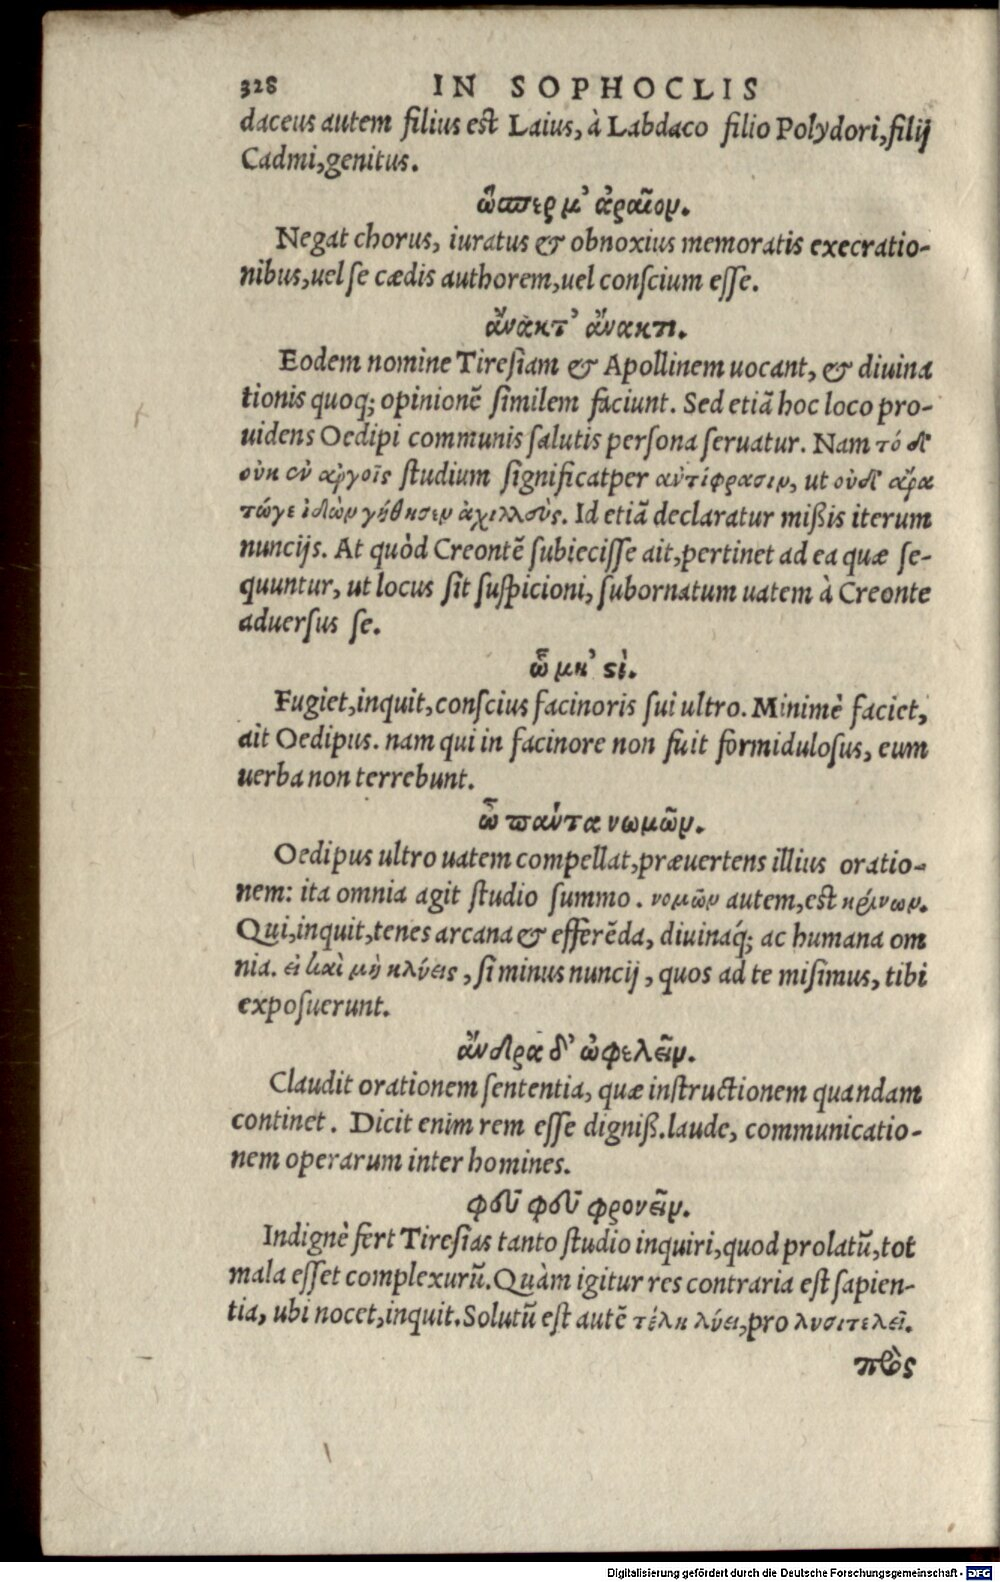 328 IN SOPHOCLIS
daceus autem filius est Laius, à Labdaco filio Polydori, filij
Cadmi, genitus.
ὥσπερ μ' ἀραῖον.
Negat chorus, iuratus & obnoxius memoratis execratio-
nibus, uel se cædis authorem, uel conscium esse.
ἄνακτ' ἄνακτι.
Eodem nomine Tiresiam & Apollinem uocant, & diuina
tionis quoq; opinionē similem faciunt. Sed etiā hoc loco pro-
uidens Oedipi communis salutis persona seruatur. Nam τό δ'
οὐκ ἐν ἀργοῖς studium significat per αὐτίφρασιν, ut οὐδ' ἄρα
τώγε ἰδὼν γήθησεν ἀχιλλεὺς. Id etiā declaratur mißis iterum
nuncijs. At quòd Creontē subiecisse ait, pertinet ad ea quæ se-
quuntur, ut locus sit suspicioni, subornatum uatem à Creonte
aduersus se.
ὧ μὴ' στὶ.
Fugiet, inquit, conscius facinoris sui ultro. Minimè faciet,
ait Oedipus. nam qui in facinore non fuit formidulosus, eum
uerba non terrebunt.
ὦ παύτα νωμῶν.
Oedipus ultro uatem compellat, præuertens illius oratio-
nem: ita omnia agit studio summo. νομῶν autem, est κρίνων.
Qui, inquit, tenes arcana & efferēda, diuinaq́; ac humana om
nia. εἰ καὶ μὴ κλύεις, si minus nuncij, quos ad te misimus, tibi
exposuerunt.
ἄνδρα δ' ὠφελεῖν.
Claudit orationem sententia, quæ instructionem quandam
continet. Dicit enim rem esse digniß. laude, communicatio-
nem operarum inter homines.
φεῦ φεῦ φρονεῖν.
Indignè fert Tiresias tanto studio inquiri, quod prolatū, tot
mala esset complexurū. Quàm igitur res contraria est sapien-
tia, ubi nocet, inquit. Solutū est autē τέλη λύει, pro λυσιτελεῖ.
πρὸς
Digitalisierung gefördert durch die Deutsche Forschungsgemeinschaft - DFG